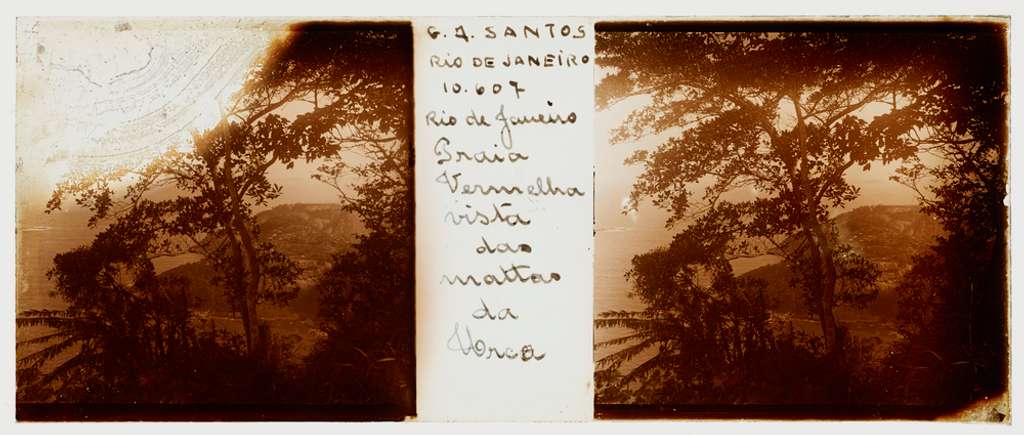 G. A. SANTOS
RIO DE JANEIRO
10.607
Rio de Janeiro
Praia
Vermelha
vista
das
mattas
da
Urca